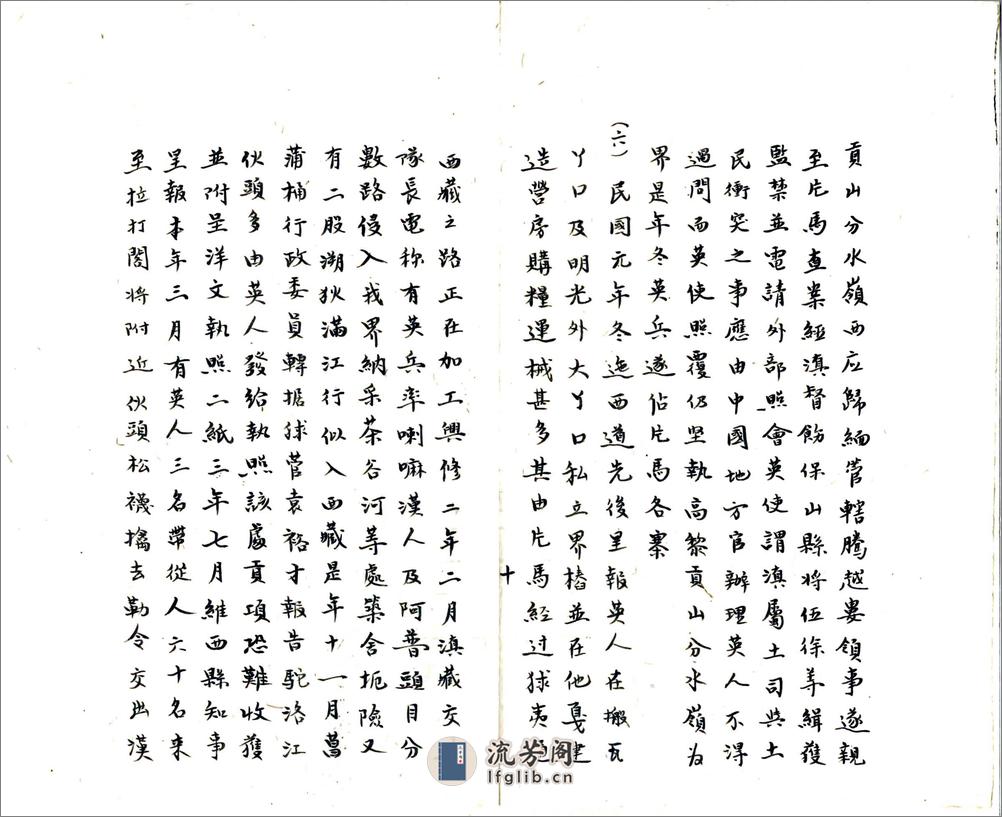 貢山分水嶺西应歸緬管轄騰越娄領事遂親
至片馬查案經滇督飭保山縣將伍徐等緝獲
監禁並電請外部照會英使謂滇屬土司與土
民衝突之事應由中國地方官辦理英人不得
過問而英使照覆仍坚執高黎貢山分水嶺为
界是年冬英兵遂佔片馬各寨
(六)民國元年冬迤西道先後呈報英人在搬瓦
丫口及明光外大丫口私立界樁並在他戛建
造營房購糧運械甚多其由片馬经过球夷
十
西藏之路正在加工興修二年二月滇藏交
隊長電称有英兵率喇嘛漢人及阿普頭目分
數路侵入我界納采茶谷河等處築舍扼險又
有二股溯狄滿江行似入西藏是年十一月菖
蒲桶行政委員轉据毬管袁裕才報告駝洛江
伙頭多由英人發给執照該處貢項恐難收獲
並附呈洋文執照二紙三年七月維西縣知事
呈報本年三月有英人三名帶從人六十名来
至拉打閣將附近伙頭松襪擒去勒令交出漢
流芳阁
lfglib.cn